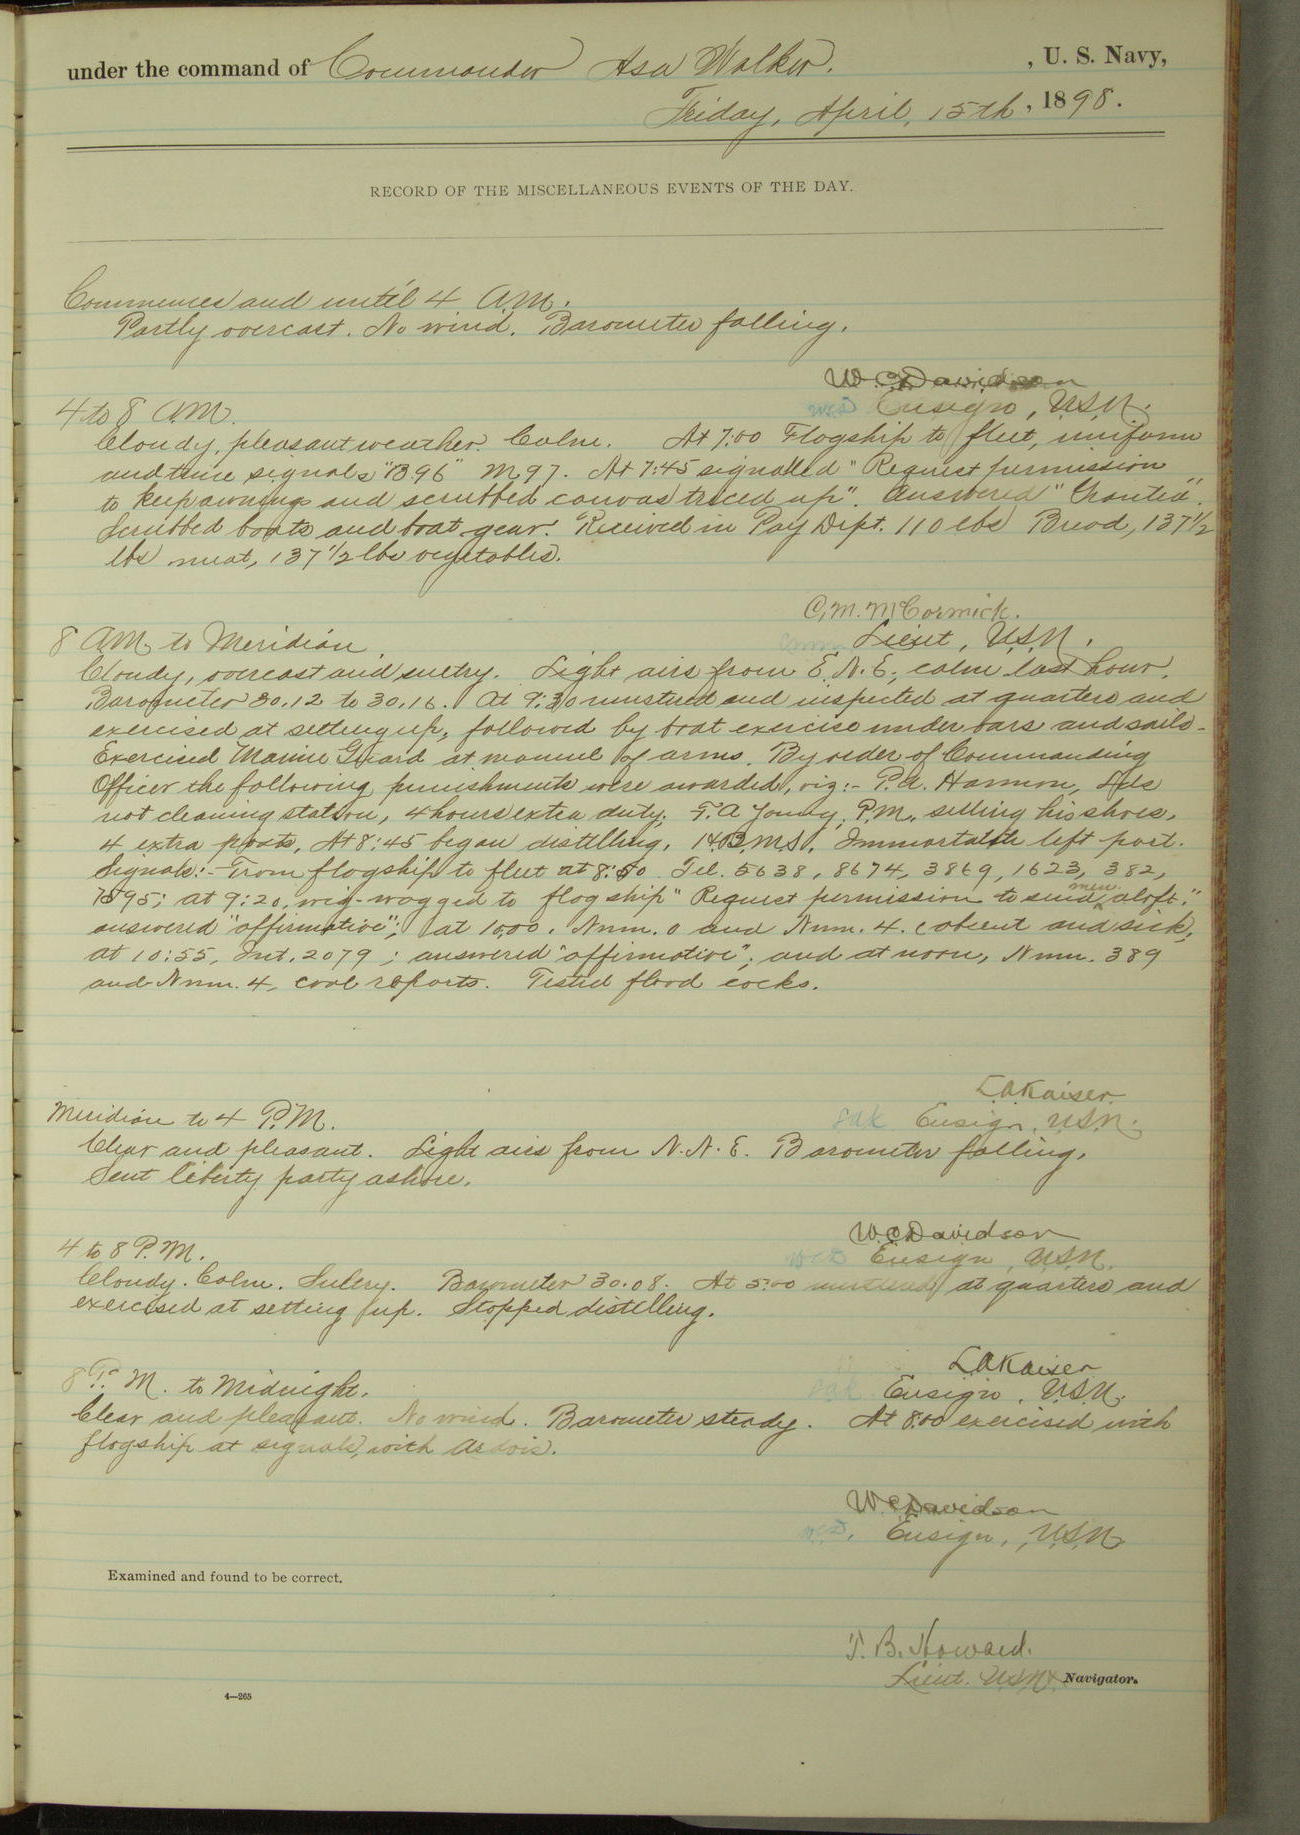 under the command of Commander Asa Walker. , U. S. Navy,
Friday, April, 15th, 1898.
RECORD OF THE MISCELLANEOUS EVENTS OF THE DAY.
Commences and until 4 A.M.
Partly overcast. No wind. Barometer falling.
W. C. Davidson
4 to 8 A.M. Ensign, U.S.N.
Cloudy, pleasant weather. Calm. At 7:00 Flagship to fleet, uniform
and time signals "B96" M97. At 7:45 signalled "Request permission
to keep awnings and scrubbed canvas triced up". Answered "Granted".
Scrubbed boats and boat gear. Received in Pay Dept. 110 lbs Bread, 137 1/2
lbs meat, 137 1/2 lbs vegetables.
C. M. McCormick.
8 A.M. to Meridian. Lieut, U.S.N.
Cloudy, overcast and sultry. Light airs from E.N.E, calm last hour.
Barometer 30.12 to 30.16. At 9:30 mustered and inspected at quarters and
exercised at setting up, followed by boat exercise under oars and sails.
Exercised Marine Guard at manual of arms. By order of Commanding
Officer the following punishments were awarded, viz:- P.A. Hannon, Lds
not cleaning station, 4 hours extra duty; F.A. Young, P.M. selling his shoes,
4 extra posts. At 8:45 began distilling. H.B.M.S. Immortalité left port.
Signals:- From flagship to fleet at 8:50 Tel. 5638, 8674, 3869, 1623, 382,
7595; at 9:20, wig-wagged to flagship "Request permission to send men aloft:"
answered "affirmative"; at 10.00. Num. 0 and Num. 4. absent and sick;
at 10:55, Int. 2079; answered "affirmative"; and at noon, Num. 389
and Num. 4, coal reports. Tested flood cocks.
L A Kaiser
Meridian to 4 P.M. LAK Ensign, U.S.N.
Clear and pleasant. Light airs from N.N.E. Barometer falling.
Sent liberty party ashore.
W. C. Davidson
4 to 8 P.M. WCD Ensign, U.S.N.
Cloudy. Calm. Sultry. Barometer 30.08. At 5:00 mustered at quarters and
exercised at setting up. Stopped distilling.
L A Kaiser
8 P.M. to Midnight. LAK Ensign, U.S.N.
Clear and pleasant. No wind. Barometer steady. At 8:00 exercised with
flagship at signals, with Ardois.
W C Davidson
WCD. Ensign, U.S.N.
Examined and found to be correct.
T. B. Howard.
Lieut. U.S.N. Navigator.
4—265